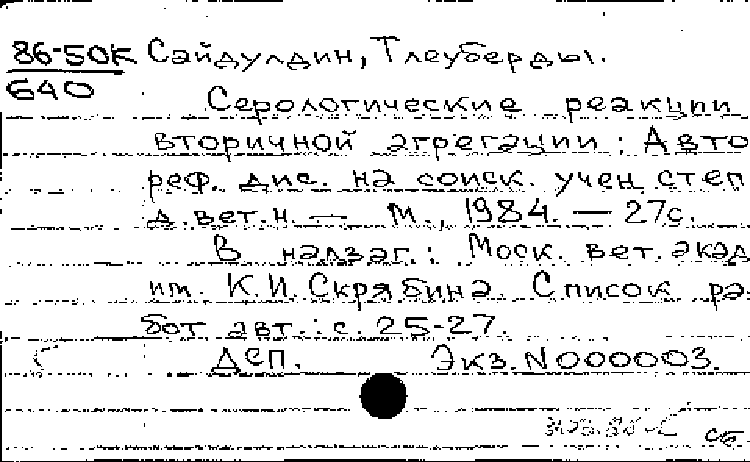 86-50К Сайдулдин, Тлеуберды.
640
Серологические реакции
вторичной агрегации: Авто
реф. дис. на соиск. учен. степ
д. вет. н. — М., 1984. — 27с.
В надзаг.: Моск. вет. акад
им. К.И. Скрябина. Список ра-
бот авт.: с. 25-27.
Деп. Экз. N000003.
сб.